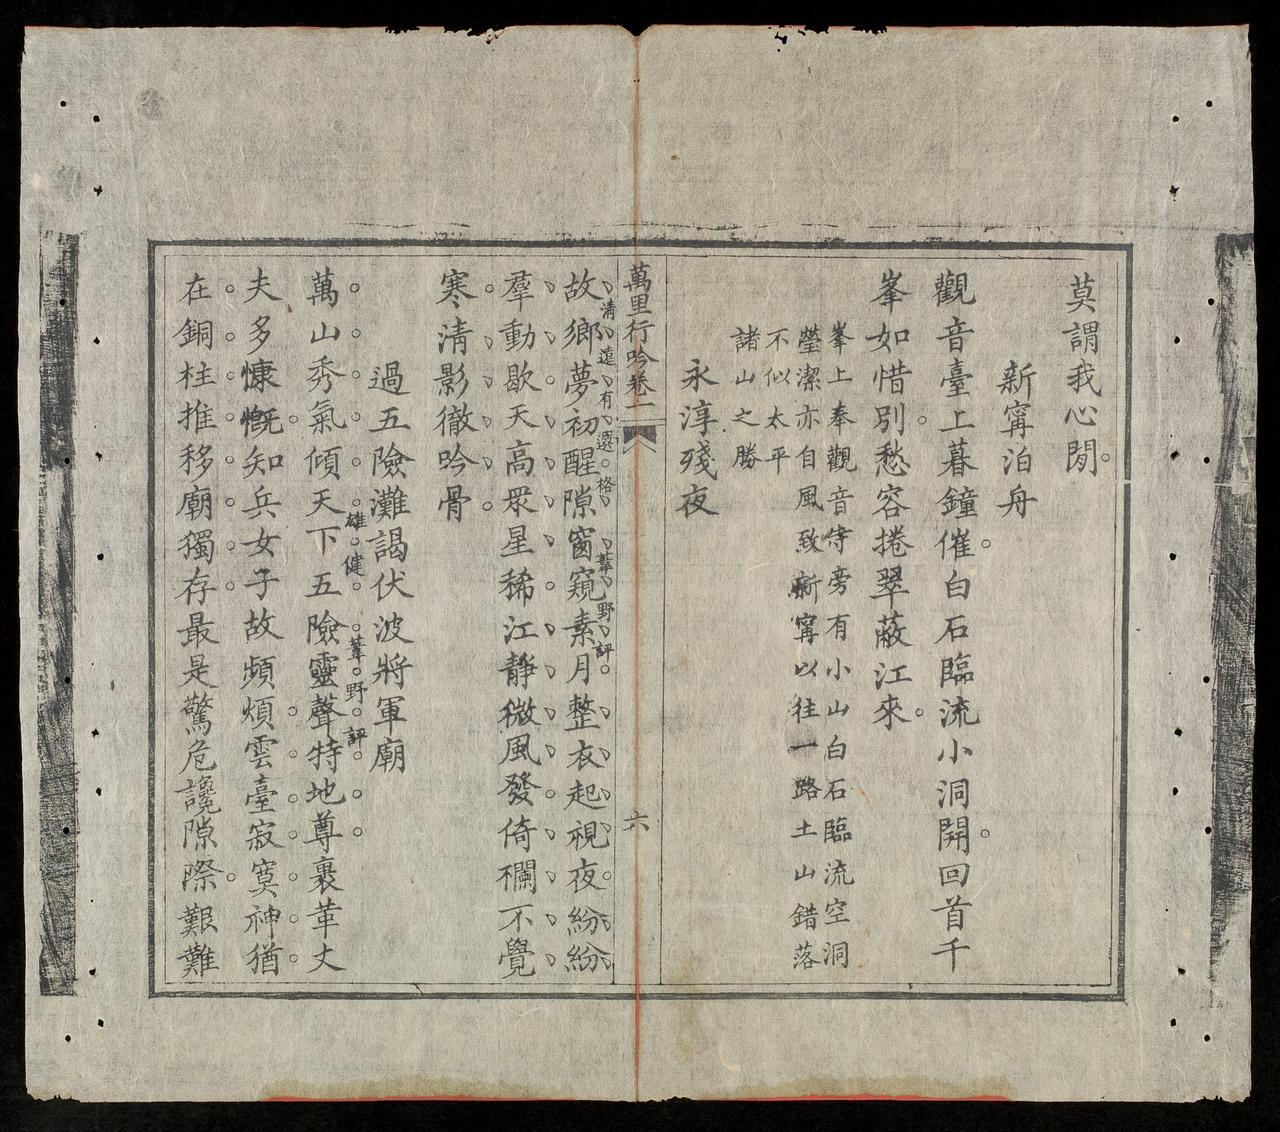 莫謂我心閒
新寗泊舟
觀音臺上暮鐘催白石臨流小洞開回首千
峯如惜別愁容捲翠蔽江來
峯上奉觀音寺旁有小山白石臨流空洞
瑩潔亦自風致新寗以往一路土山錯落
不似太平
諸山之勝
永淳殘夜
萬里行吟卷一
六
故鄉夢初醒隙窗窺素月整衣起視夜紛紛
清遠有選格葦野評
羣動歇天高眾星稀江靜微風發倚欄不覺
寒淸影徹吟骨
過五險灘謁伏波將軍廟
萬山秀氣傾天下五險靈聲特地尊裹革丈
雄健葦野評
夫多慷慨知兵女子故頻煩雲臺寂寞神猶
在銅柱推移廟獨存最是驚危讒隙際艱難